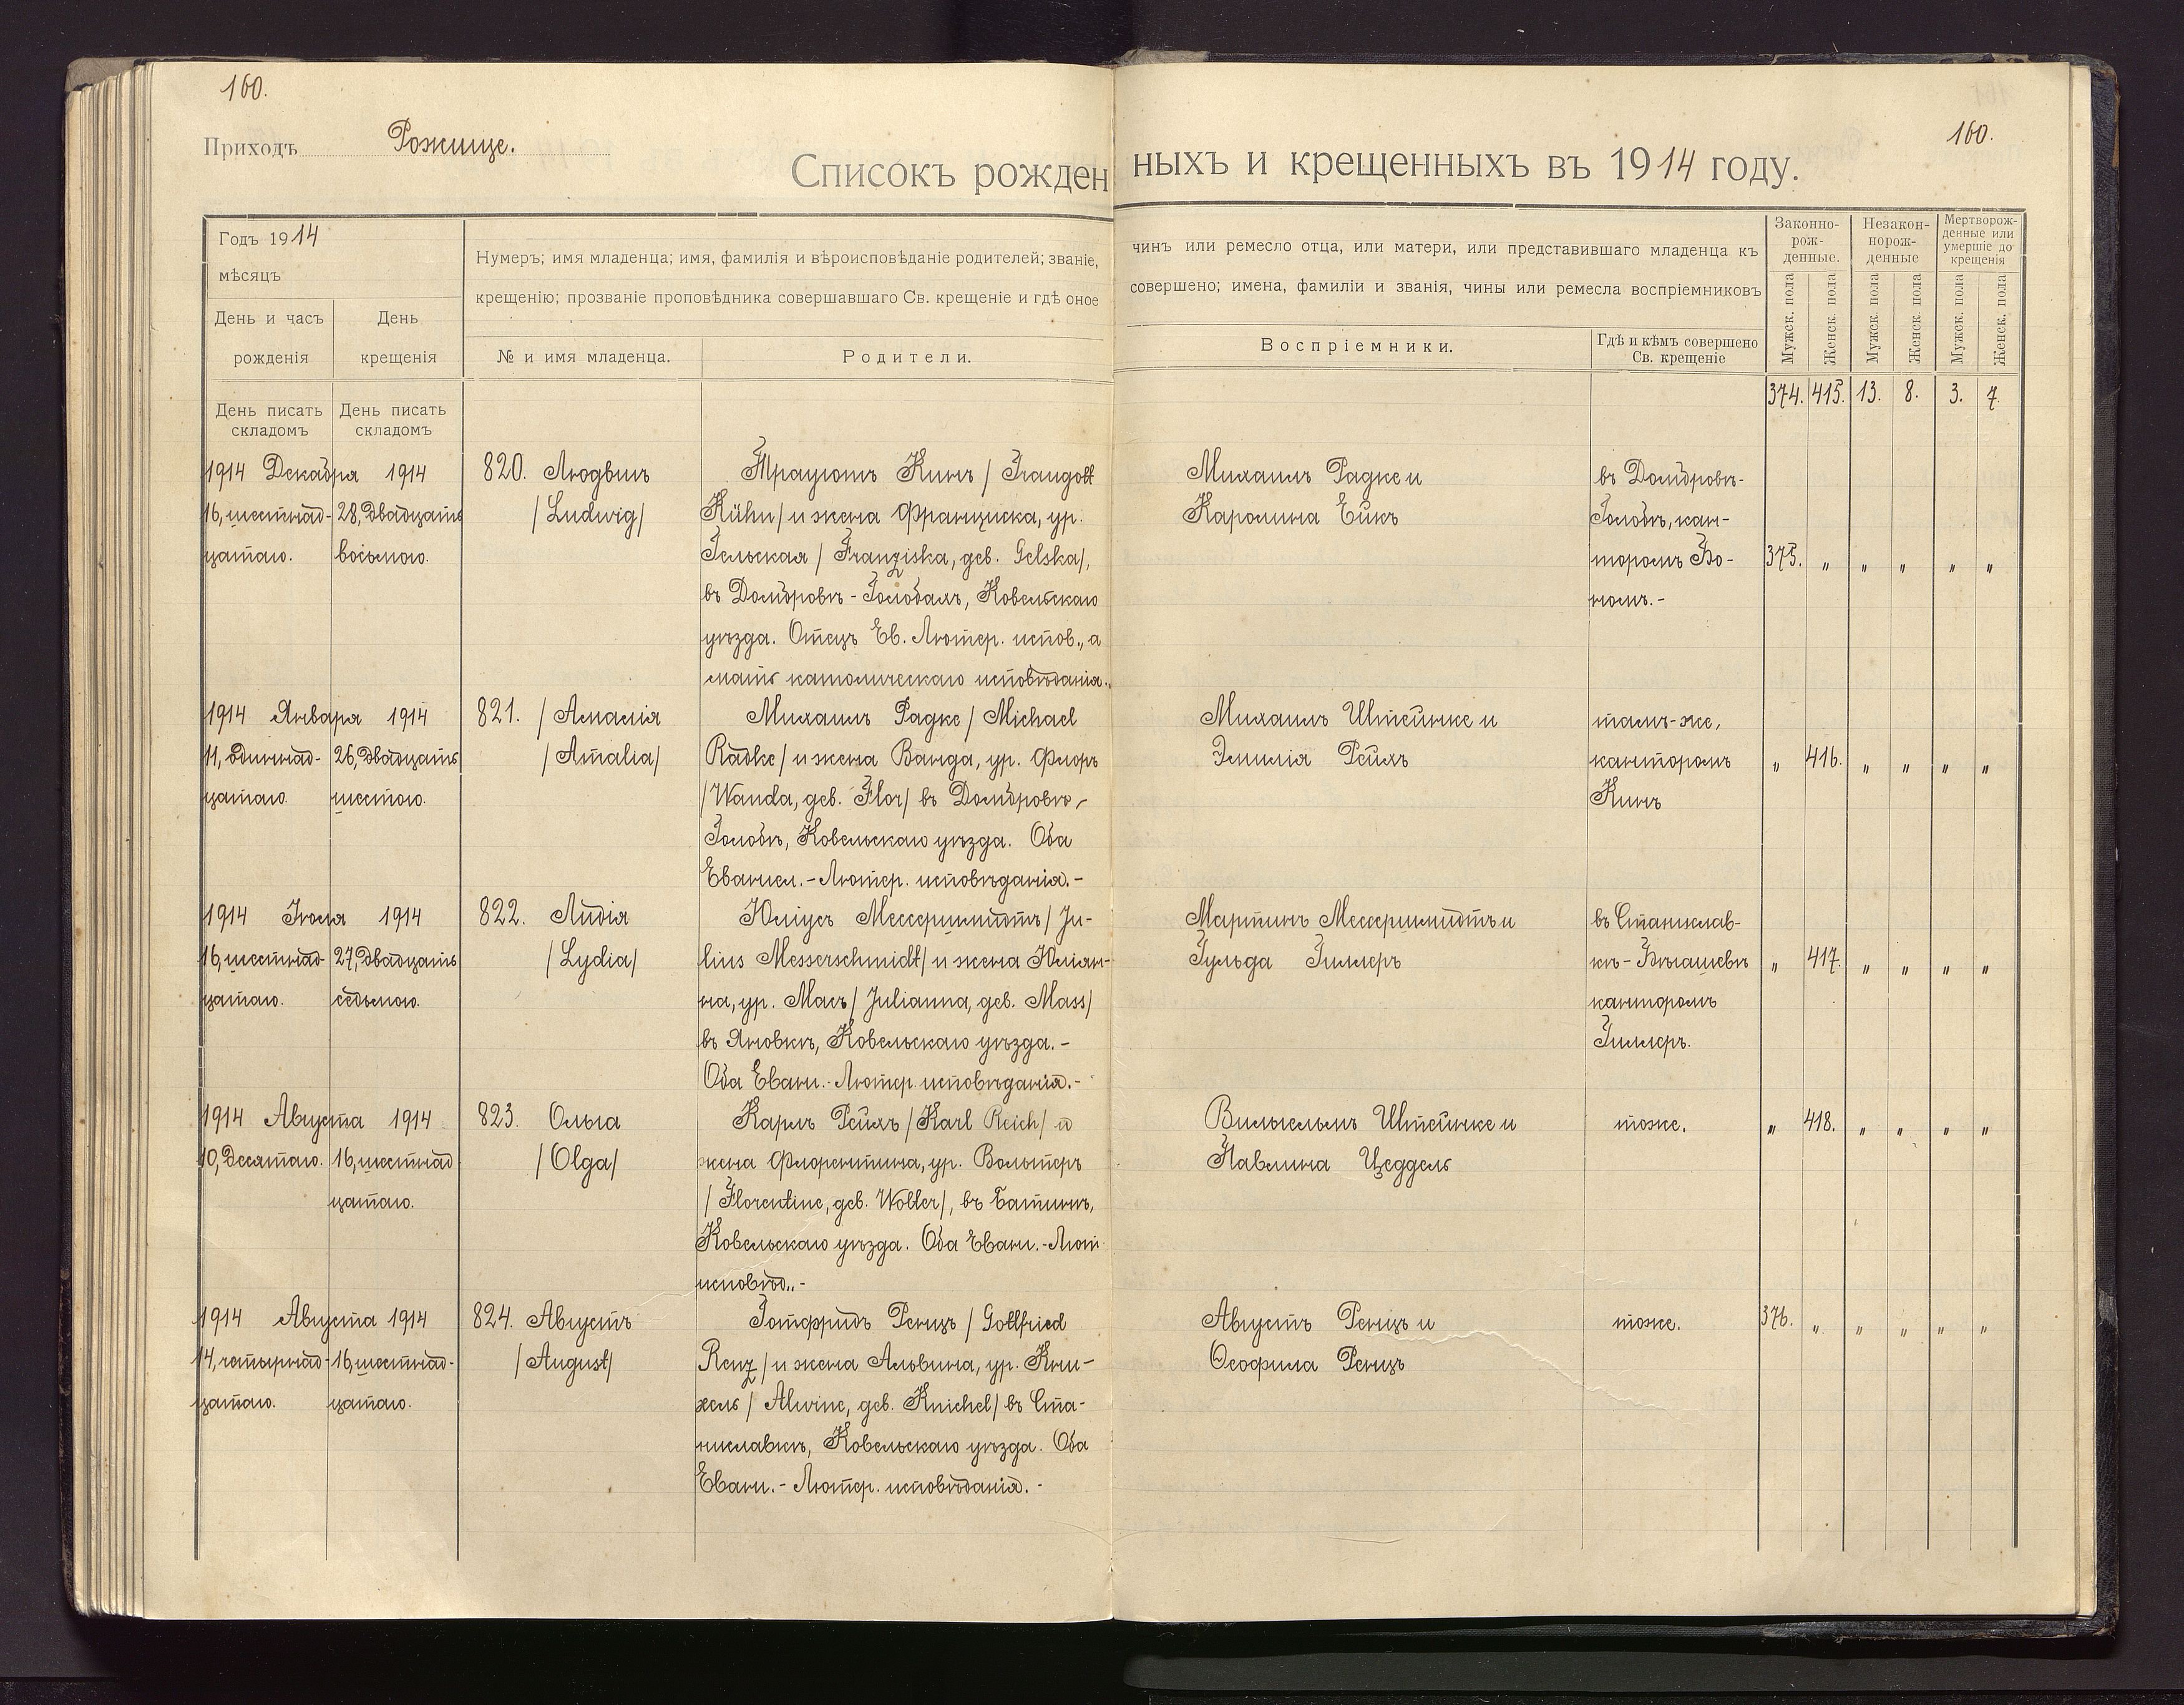 160.
Приходъ Рожище.
160.
Списокъ рожденныхъ и крещенныхъ въ 1914 году.
Годъ 1914
мѣсяцъ
День и часъ рожденія
День крещенія
Нумеръ; имя младенца; имя, фамилія и вѣроисповѣданіе родителей; званіе, чинъ или ремесло отца, или матери, или представившаго младенца къ
крещенію; прозваніе проповѣдника совершавшаго Св. крещеніе и гдѣ оное совершено; имена, фамиліи и званія, чины или ремесла воспріемниковъ
№ и имя младенца.
Родители.
Воспріемники.
Гдѣ и кѣмъ совершено
Св. крещеніе
Законно-
рож-
денные.
Незакон-
норож-
денные
Мертворож-
денные или
умершіе до
крещенія
Мужск. пола
Женск. пола
Мужск. пола
Женск. пола
Мужск. пола
Женск. пола
День писать
складомъ
День писать
складомъ
374. 415. 13. 8. 3. 7.
1914 Декабря 1914
16, шестнад-
цатаго.
28, двадцать
восьмого.
820. Людвигъ
/Ludwig/
Трауготъ Кинъ /Traugott
Kühn/ и жена Франциска, ур.
Гельская /Franziska, geb. Gelska/,
въ Домбровѣ-Голобахъ, Ковельскаго
уѣзда. Отецъ Ев. Лютер. испов., а
мать католическаго исповѣданія.
Михаилъ Радке и
Каролина Ейкъ
въ Домбровѣ-
Голобѣ, кан-
торомъ Бо-
номъ.-
375. " " " " "
1914 Января 1914
11, одиннад-
цатаго.
26, двадцать
шестого.
821. /Амалія
/Amalia/
Михаилъ Радке /Michael
Radke/ и жена Ванда, ур. Флоръ
/Wanda, geb. Flor/ въ Домбровѣ-
Голобѣ, Ковельскаго уѣзда. Оба
Евангел.-Лютер. исповѣданія.-
Михаилъ Штейнке и
Эмилія Рейхъ
тамъ-же,
канторомъ
Кинъ
" 416. " " " "
1914 Іюля 1914
16, шестнад-
цатаго.
27, двадцать
седьмого.
822. Лидія
/Lydia/
Юліусъ Мессершмидтъ /Ju-
lius Messerschmidt/ и жена Юліан-
на, ур. Масъ /Julianna, geb. Mass/
въ Яновкѣ, Ковельскаго уѣзда.-
Оба Еванг.-Лютер. исповѣданія.-
Мартинъ Мессершмидтъ и
Гульда Гиллеръ
въ Станислав-
кѣ-
канторомъ
Гиллеръ.
" 417. " " " "
1914 Августа 1914
10, десятаго.
16, шестнад
цатаго.
823. Ольга
/Olga/
Карлъ Рейхъ /Karl Reich/ и
жена Флорентина, ур. Вольтеръ
/Florentine, geb. Wolter/, въ Батынѣ,
Ковельскаго уѣзда. Оба Еванг.-Лют
исповѣд..-
Вильгельмъ Штейнке и
Павлина Цеддель
тоже.
" 418. " " " "
1914 Августа 1914
14, четырнад-
цатаго.
16, шестнад-
цатаго.
824. Августъ
/August/
Готфридъ Ренцъ /Gottfried
Renz/ и жена Альвина, ур. Кни-
хель /Alwine, geb. Knichel/ въ Ста-
ниславкѣ, Ковельскаго уѣзда. Оба
Еванг.-Лютер. исповѣданія.-
Августъ Ренцъ и
Ѳеофила Ренцъ
тоже.
376. " " " " "